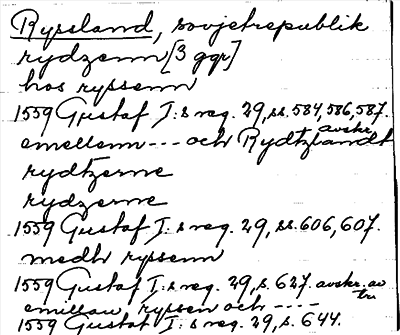 Ryssland, sovjetrepublik
rydzenn [3 ggr]
hos ryssenn
1559 Gustaf I:s reg. 29, ss. 584, 586, 587.
avskr.
emellenn --- och Rydtzlandt
rydtzerne
rydzerne
1559 Gustaf I:s reg. 29, ss. 606, 607.
medh ryssenn
1559 Gustaf I:s reg. 29, s. 627. avskr. av
emillan ryssen och ----
1559 Gustaf I:s reg. 29, s. 644.